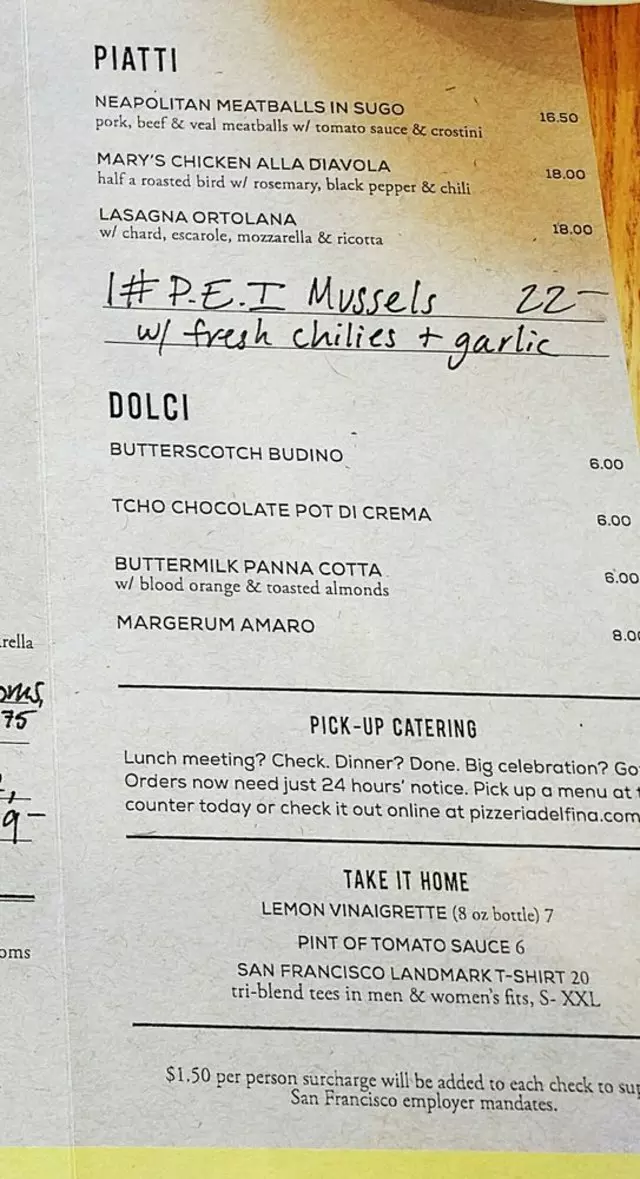 PIATTI
NEAPOLITAN MEATBALLS IN SUGO 16.50
pork, beef & veal meatballs w/ tomato sauce & crostini
MARY'S CHICKEN ALLA DIAVOLA 18.00
half a roasted bird w/ rosemary, black pepper & chili
LASAGNA ORTOLANA 18.00
w/ chard, escarole, mozzarella & ricotta
1# P.E.I Mussels 22-
w/ fresh chilies + garlic
DOLCI
BUTTERSCOTCH BUDINO 6.00
TCHO CHOCOLATE POT DI CREMA 6.00
BUTTERMILK PANNA COTTA 6.00
w/ blood orange & toasted almonds
MARGERUM AMARO 8.00
rella
oms,
75
9-
oms
PICK-UP CATERING
Lunch meeting? Check. Dinner? Done. Big celebration? Go
Orders now need just 24 hours' notice. Pick up a menu at t
counter today or check it out online at pizzeriadelfina.com
TAKE IT HOME
LEMON VINAIGRETTE (8 oz bottle) 7
PINT OF TOMATO SAUCE 6
SAN FRANCISCO LANDMARK T-SHIRT 20
tri-blend tees in men & women's fits, S- XXL
$1.50 per person surcharge will be added to each check to su
San Francisco employer mandates.